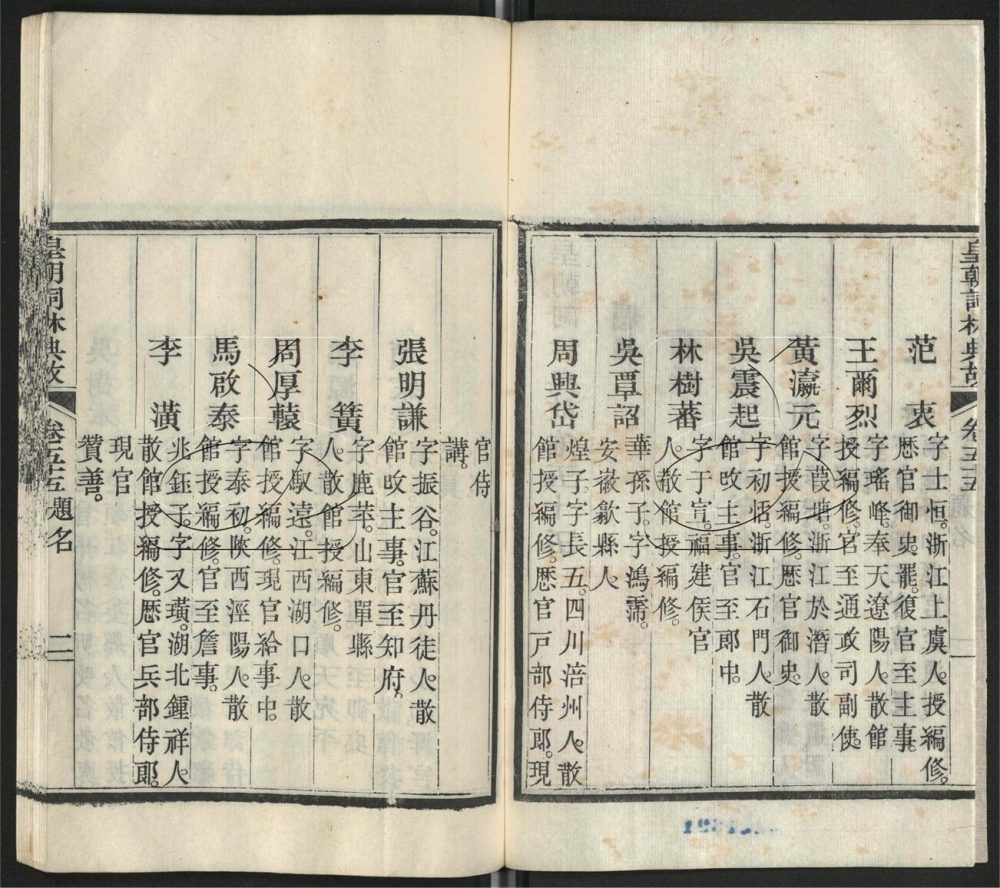 皇朝詞林典故 卷五十五
范衷 字士恒。浙江上虞人。授編修。
歷官御史。罷。復官至主事
王爾烈 字瑤峰。奉天遼陽人。散館
授編修。官至通政司副使。
黃瀛元 字葭塘。浙江於潛人。散
館授編修。歷官御史。
吳震起 字初。浙江石門人。散
館改主事。官至郎中。
林樹蕃 字于宣。福建侯官
人。散館授編修。
吳覃詔 華孫子。字鴻霈。
安徽歙縣人
周興岱 煌子。字長五。四川涪州人。散
館授編修。歷官戶部侍郎。現
官侍
講。
張明謙 字振谷。江蘇丹徒人。散
館改主事。官至知府。
李簧 字鹿苹。山東單縣
人。散館授編修。
周厚轅 字馭遠。江西湖口人。散
館授編修。現官給事中。
馬啟泰 字泰初。陝西涇陽人。散
館授編修。官至詹事。
李潢 兆鈺子。字又璜。湖北鍾祥人。
散館授編修。歷官兵部侍郎。
現官
贊善。
皇朝詞林典故 卷五十五 題名 二